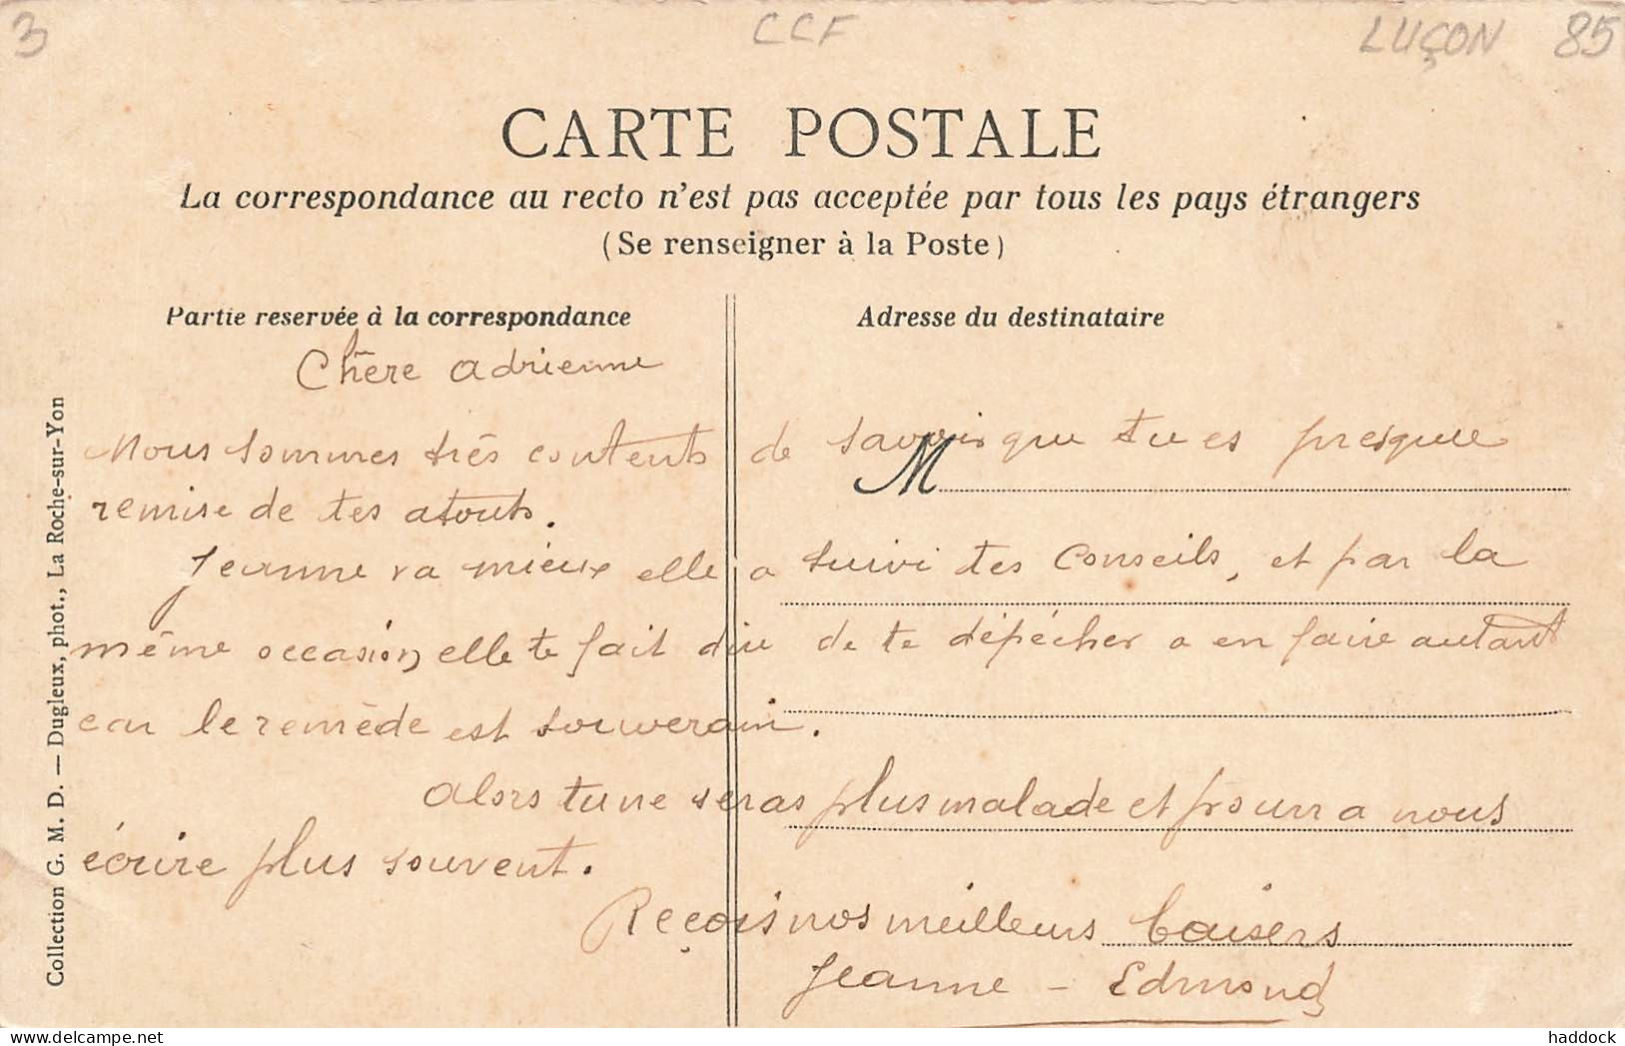 3 CCF LUÇON 85
CARTE POSTALE
La correspondance au recto n'est pas acceptée par tous les pays étrangers
(Se renseigner à la Poste)
Partie reservée à la correspondance
Adresse du destinataire
Chère adrienne
Nous sommes très contents de savoir que tu es presque
M
remise de tes atouts.
Jeanne va mieux elle a suivi tes conseils, et par la
même occasion elle te fait dire de te dépécher a en faire autant
car le remède est souverain.
alors tu ne seras plus malade et pourra nous
écrire plus souvent.
Reçois nos meilleurs baisers
Jeanne - Edmond
Collection G. M. D. — Dugleux, phot., La Roche-sur-Yon
haddock